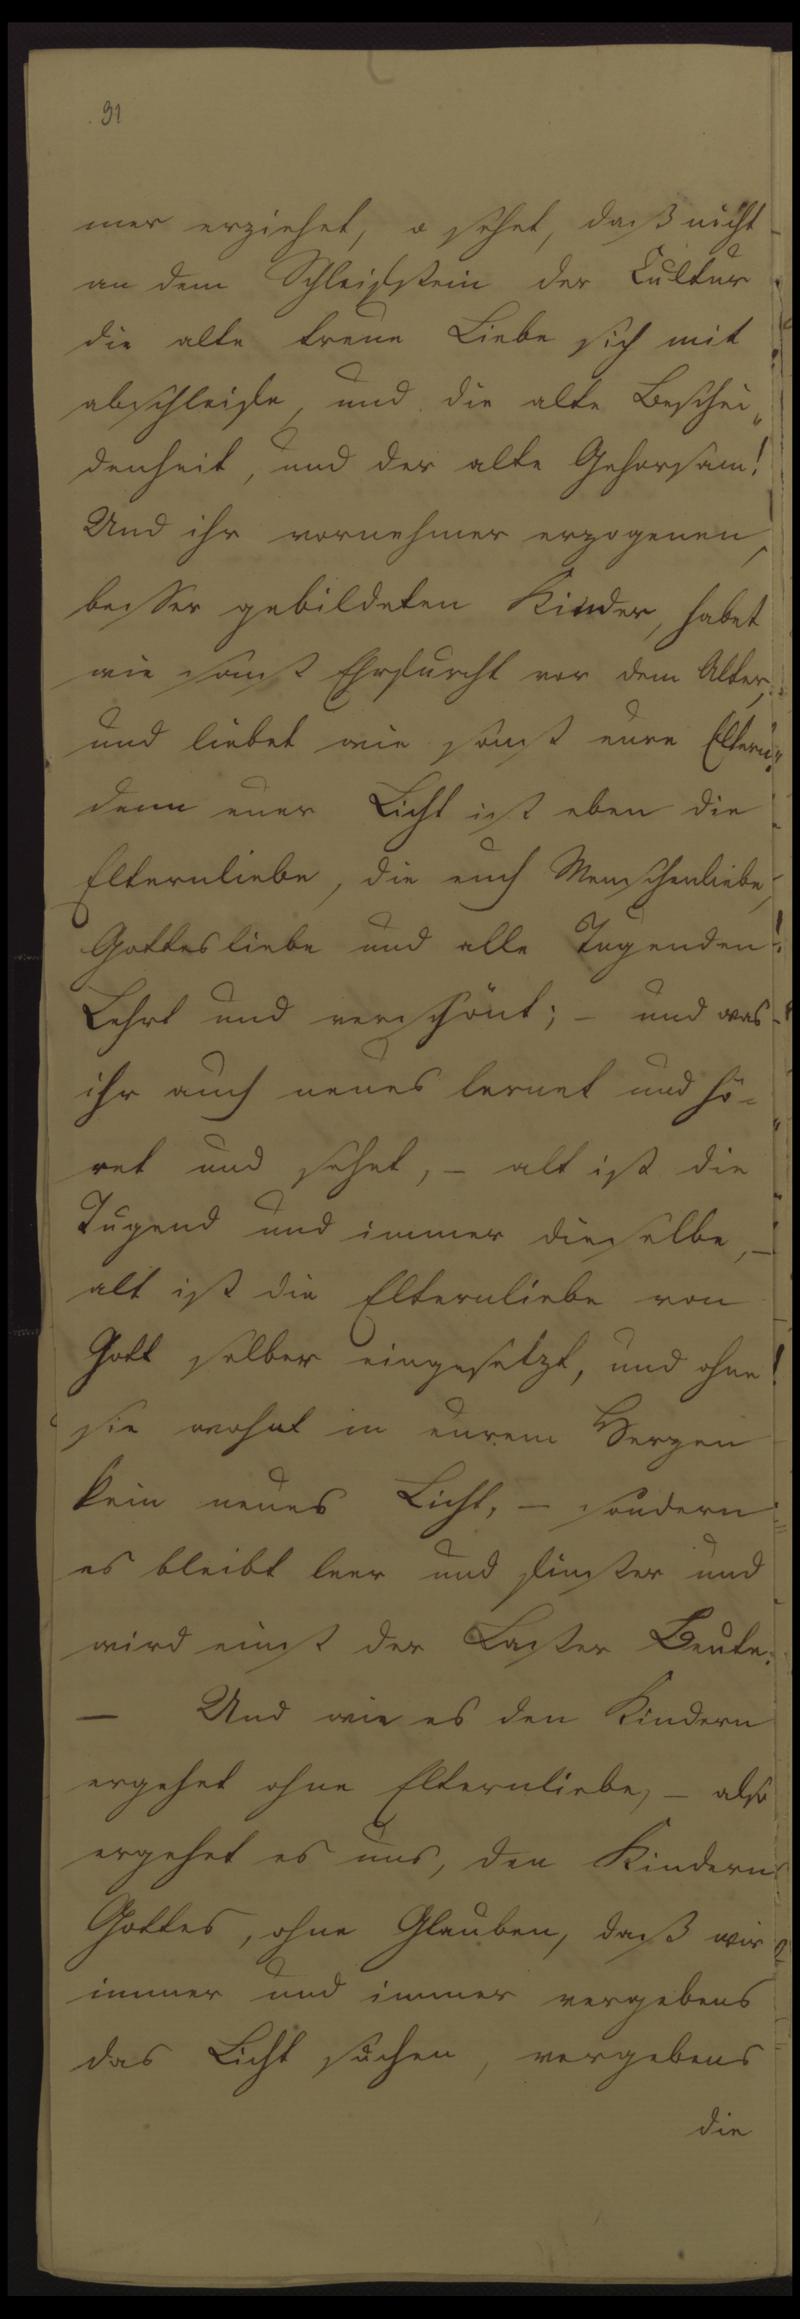 91
mer erziehet, o sehet, daß nicht
an dem Schleifstein der Cultur
die alte treue Liebe sich mit
abschleife, und die alte Beschei„
denheit, und der alte Gehorsam!
Und ihr vornehmer erzogenen,
besser gebildeten Kinder, habet
wie sonst Ehrfurcht vor dem Alter,
und liebet wie sonst eure Eltern,
denn euer Licht ist eben die
Elternliebe, die euch Menschenliebe,
Gottesliebe und alle Tugenden
Lehrt und verschönt; – und was
ihr auch neues lernet und hö-
ret und sehet, – alt ist die
Tugend und immer dieselbe, –
alt ist die Elternliebe von
Gott selber eingesetzt, und ohne
sie wohnt in eurem Herzen
kein neues Licht, – sondern
es bleibt leer und finster und
wird einst der Laster Beute.
– Und wie es den Kindern
ergehet ohne Elternliebe, – also
ergehet es uns, den Kindern
Gottes, ohne Glauben, daß wir
immer und immer vergebens
das Licht suchen, vergebens
die